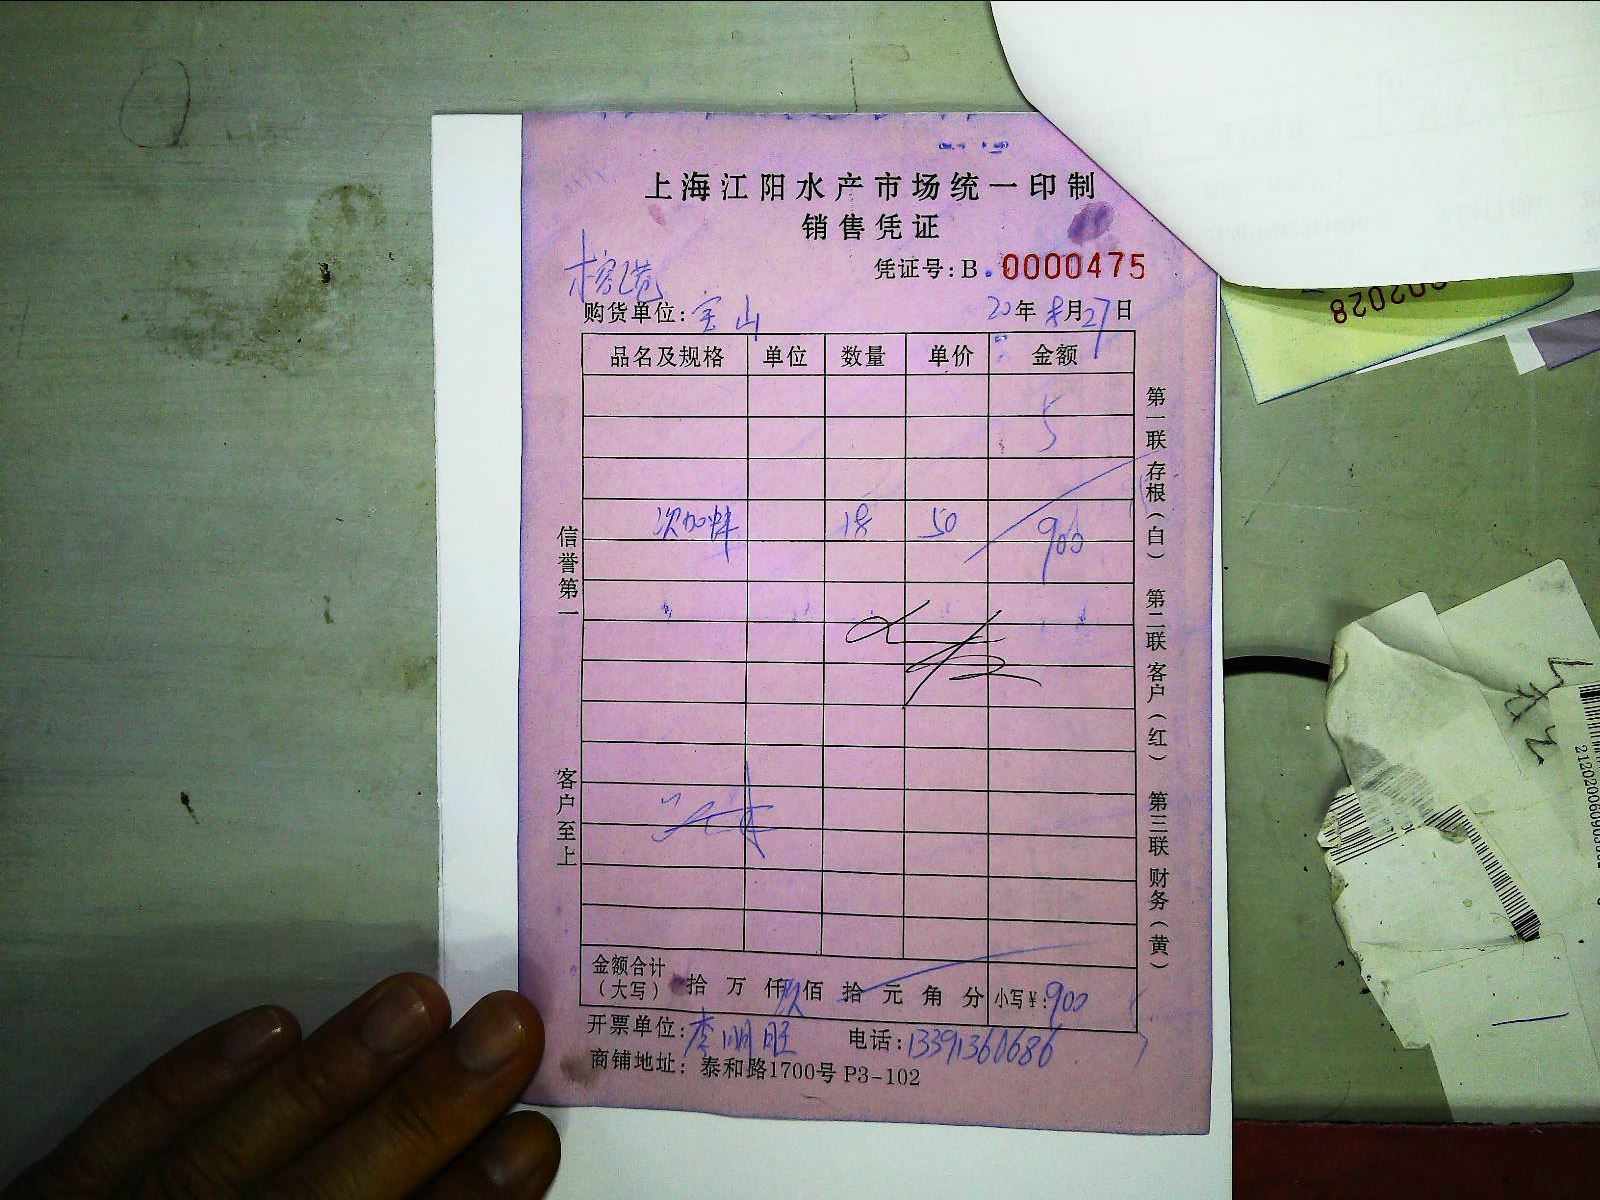 上海江阳水产市场统一印制
销售凭证
凭证号:B.0000475
榕港
购货单位:宝山 20年8月27日
品名及规格 单位 数量 单价 金额
5
18 50 900
金额合计(大写) 拾 万 仟 玖佰 拾 元 角 分 小写¥:900
开票单位:李明旺 电话:13391360686
商铺地址:泰和路1700号 P3-102
信誉第一
客户至上
第一联存根(白)
第二联客户(红)
第三联财务(黄)
002028